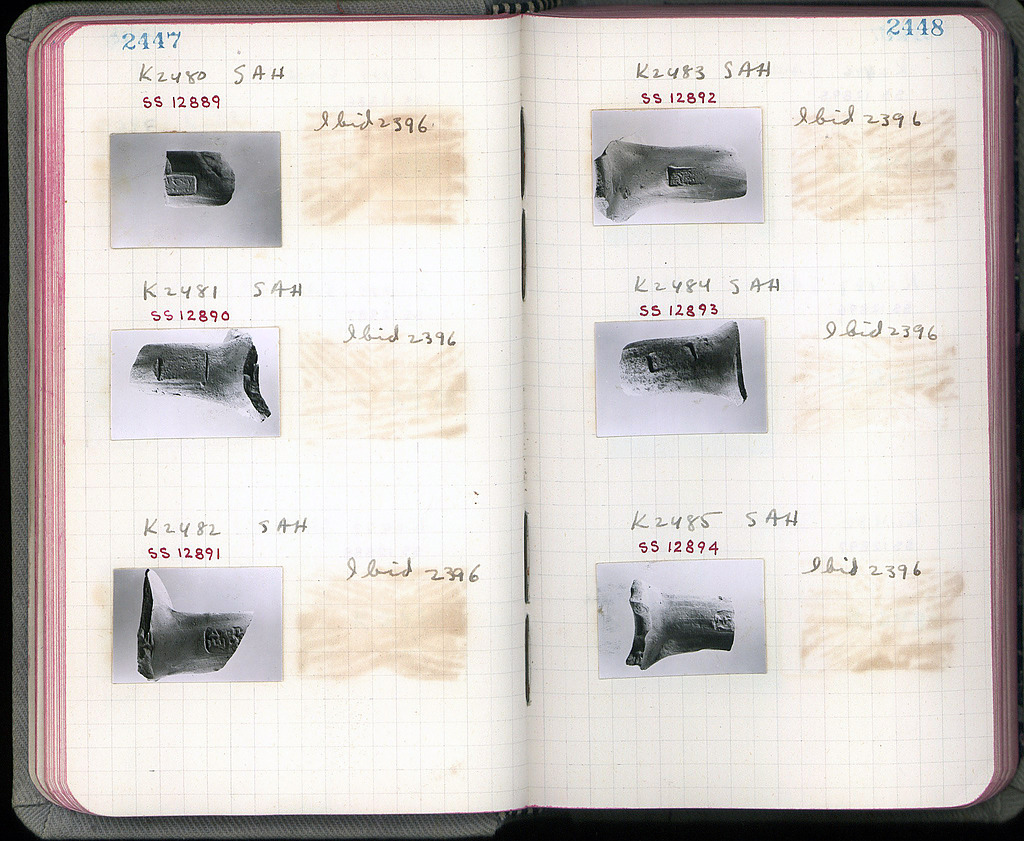 2447
K2480 SAH
SS 12889
Ibid 2396
K2481 SAH
SS 12890
Ibid 2396
K2482 SAH
SS 12891
Ibid 2396
2448
K2483 SAH
SS 12892
Ibid 2396
K2484 SAH
SS 12893
Ibid 2396
K2485 SAH
SS 12894
Ibid 2396